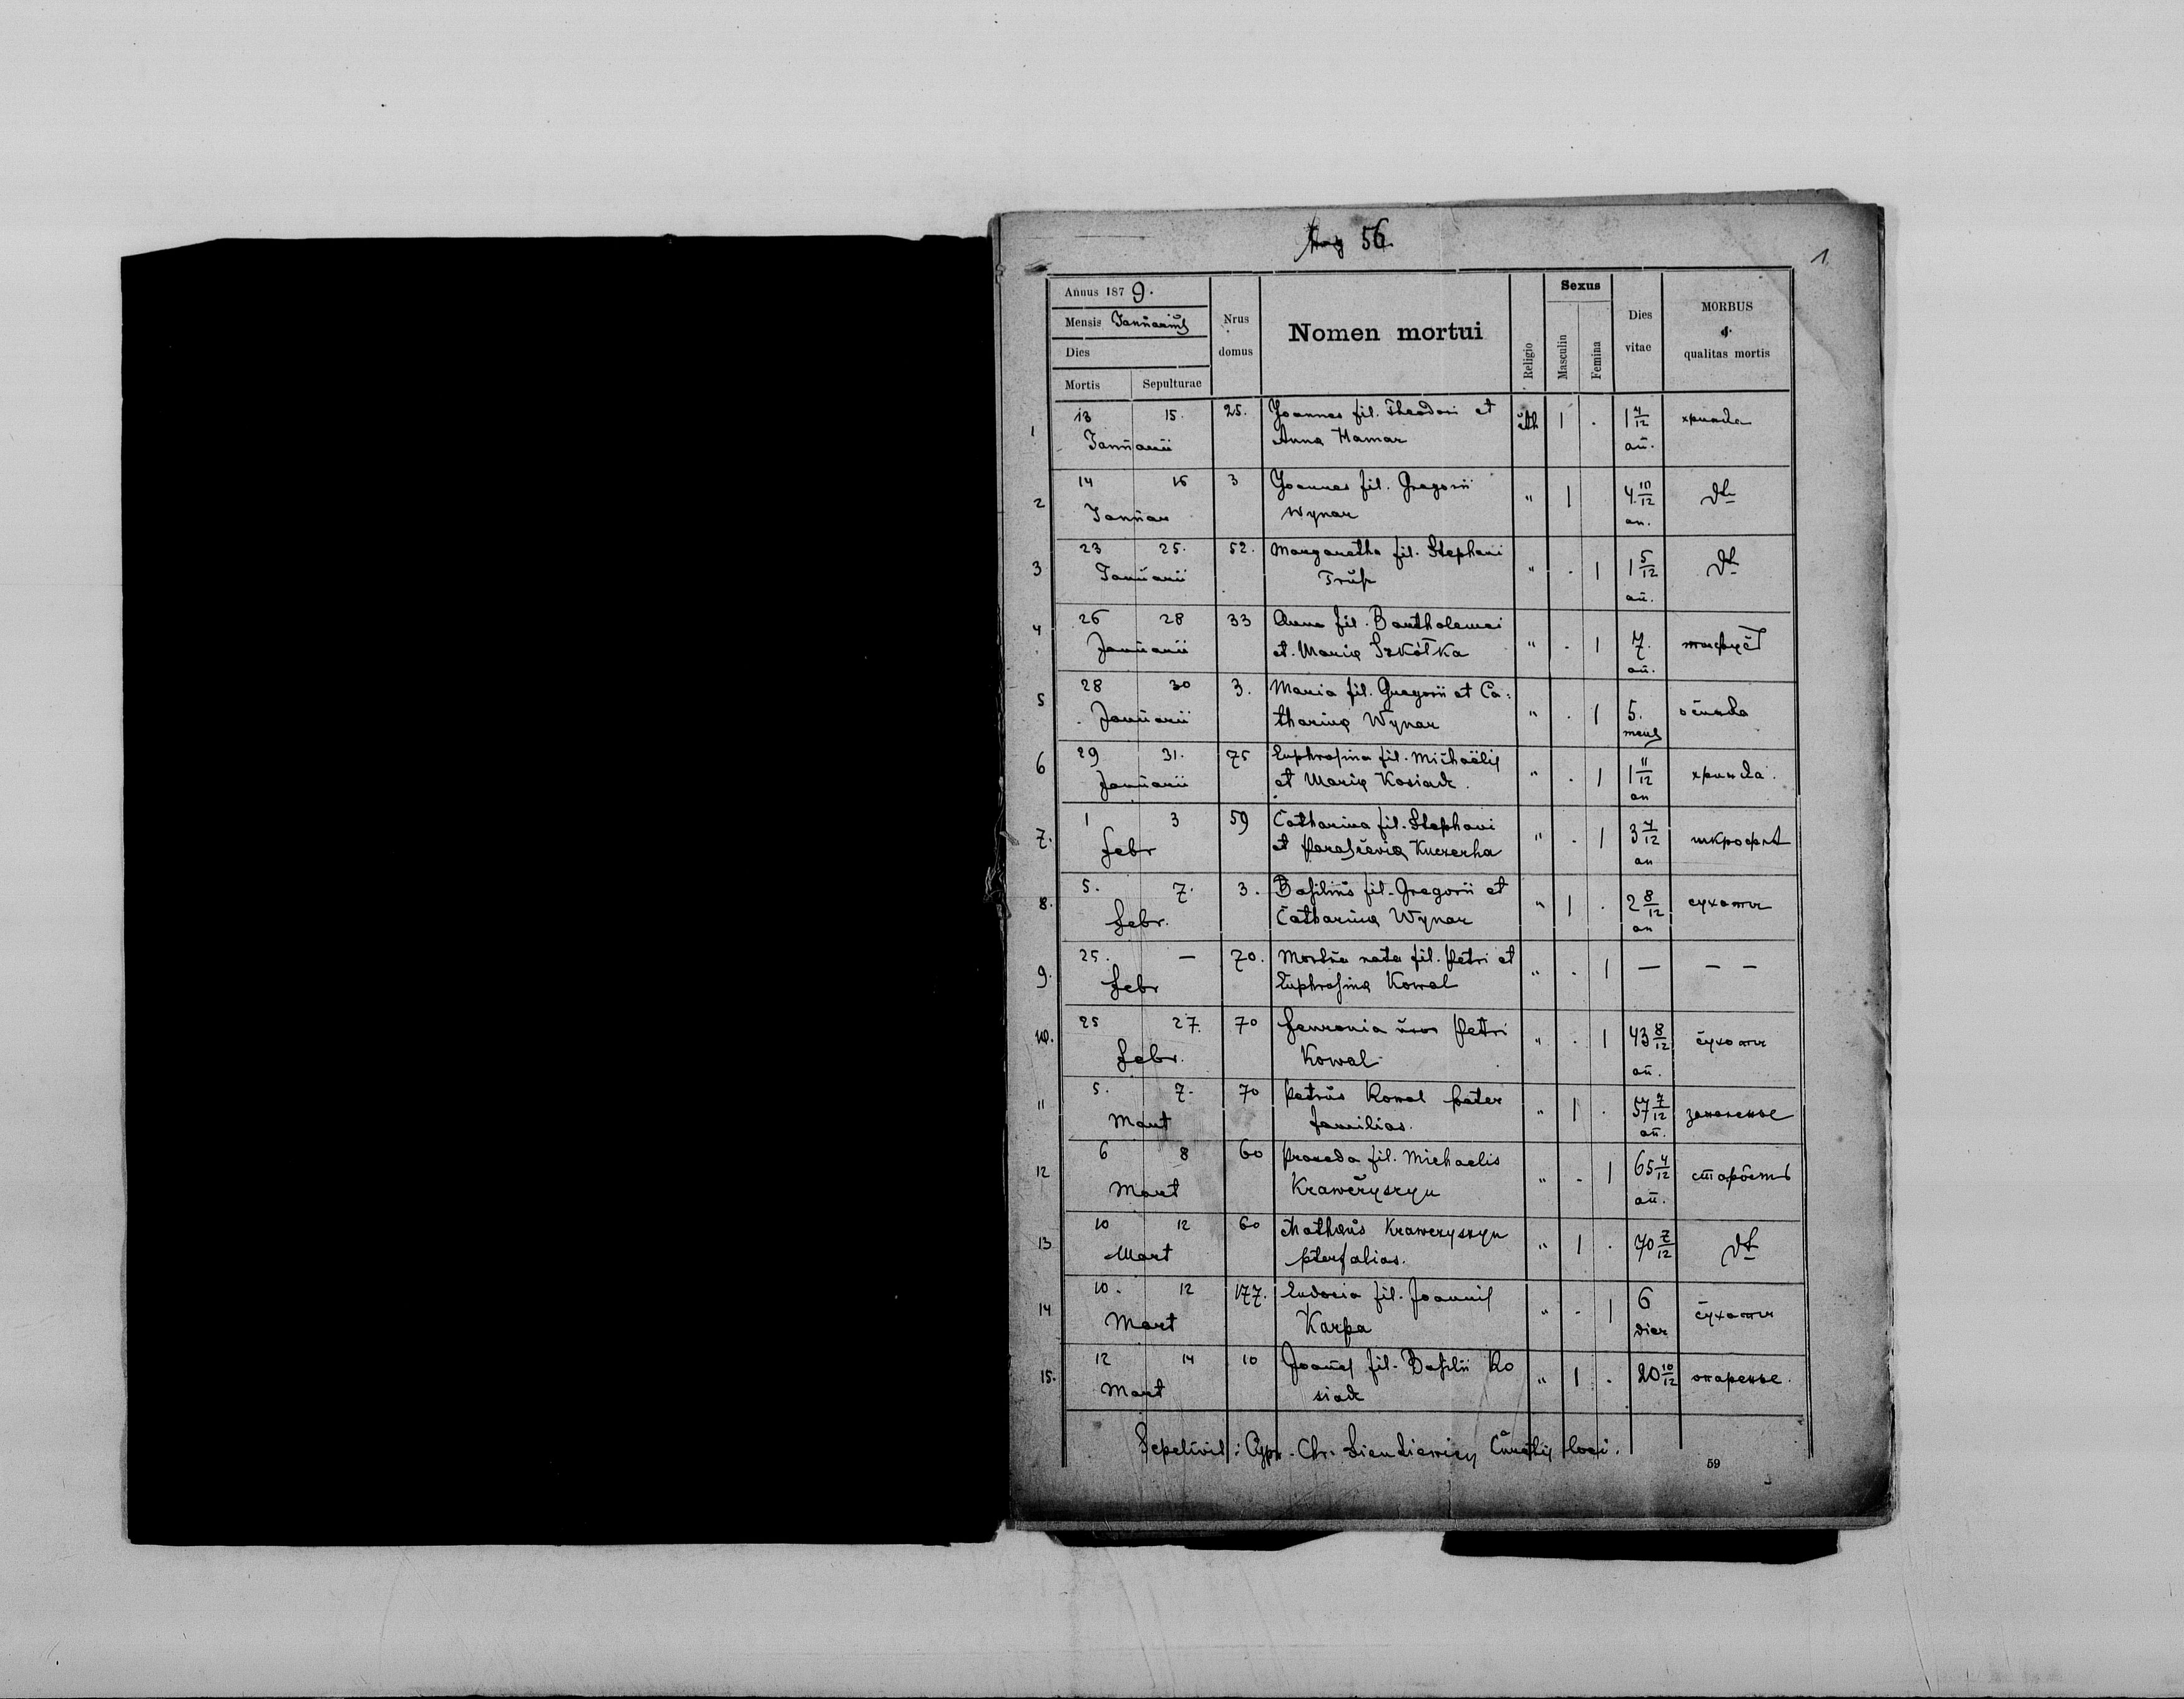 56.
1
Annus 1879.
Mensis Januarius
Dies
Mortis Sepulturae
Nrus domus
Nomen mortui
Religio
Sexus
Masculin
Femina
Dies vitae
MORBUS
&
qualitas mortis
1 13 15. 25. Joannes fil. Theodori et 1 . 1 4/12
Januarii Anna Hamar an.
2 14 16 3 Joannes fil. Gregorii " 1 4 10/12 dt
Januar Wynar an.
3 23 25. 52. Margaretha fil. Stephani " . 1 1 5/12 dt
Januarii Trusz an.
4 26 28 33 Anna fil. Bartholomei " . 1 7.
Januarii et Maria Szkółka an.
5 28 30 3. Maria fil. Gregorii et Ca: " . 1 5.
Januarii tharina Wynar mens
6 29 31. 75 Euphrosina fil. Michaëlis " . 1 1 11/12
Januarii et Maria Kosiak. an
7. 1 3 59 Catharina fil. Stephani " . 1 3 4/12
Febr et Parascevia Kuczerha an
8. 5. 7. 3. Basilius fil. Gregorii et " 1 . 2 8/12 сухоты
Febr. Catharina Wynar an
9. 25. — 70. Mortua nata fil. Petri et " . 1 — — —
Febr Euphrosina Kowal
10. 25 27. 70 Fevronia uxor Petri " . 1 43 8/12 сухоты
Febr. Kowal an.
11 5. 7. 70 Petrus Kowal pater " 1 . 57 7/12
Mart familias. an.
12 6 8 60 Praxeda fil. Michaelis " . 1 65 4/12 старость
Mart Kraweczyszyn an.
13 10 12 60 Mathaus Kraweczyszyn " 1 . 70 7/12 dt
Mart pterfalias.
14 10. 12 177. Eudocia fil. Joannis " . 1 6 сухоты
Mart Karpa dier
15. 12 14 10 Joanes fil. Basilii Ko " 1 . 20 10/12
Mart siak
Sepelivit: Cypr. Chr. loci.
59